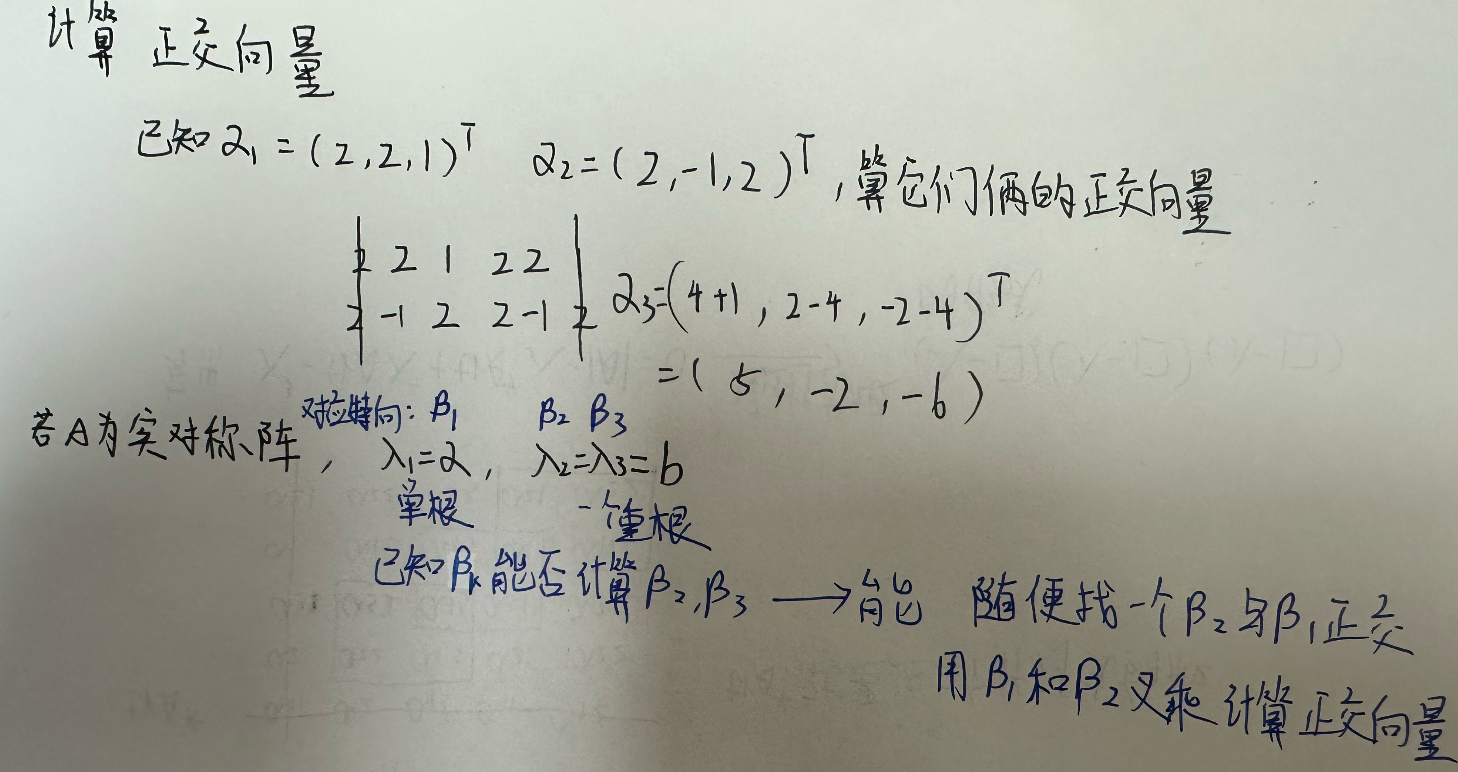 计算 正交向量
已知 α₁ = (2,2,1)ᵀ α₂ = (2,-1,2)ᵀ, 算它们俩的正交向量
2 2 1 2 2
2 -1 2 2 -1 2 α₃=(4+1, 2-4, -2-4)ᵀ
= ( 5, -2, -6 )
对应特向: β₁ β₂ β₃
若A为实对称阵, λ₁=α, λ₂=λ₃=b
单根 一个重根
已知β₁能否计算β₂,β₃ → 能 随便找一个β₂与β₁正交
用β₁和β₂叉乘计算正交向量